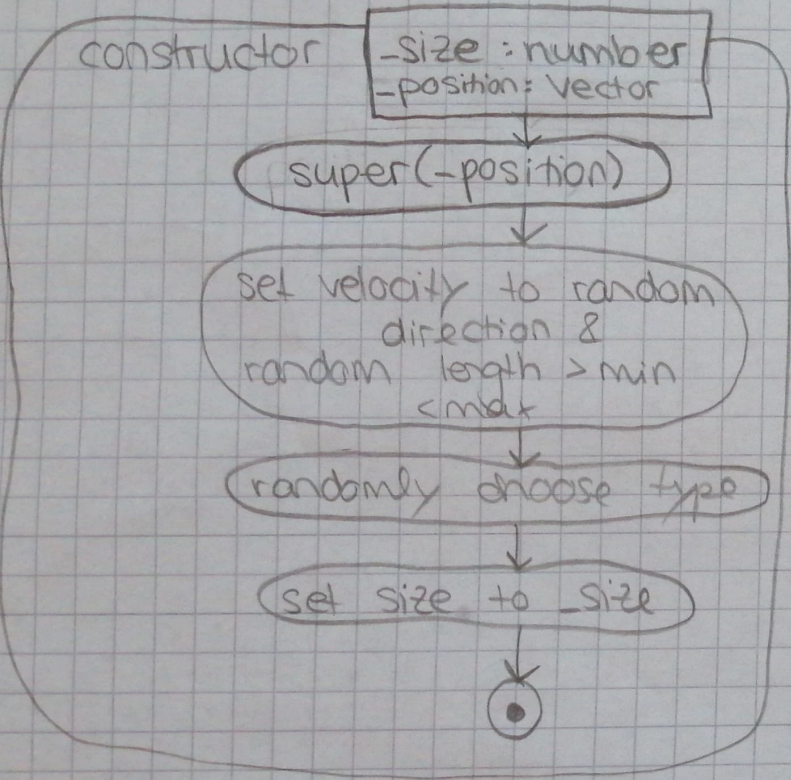 constructor
_size : number
_position : Vector
super(_position)
set velocity to random
direction &
random length > min
< max
randomly choose type
set size to _size